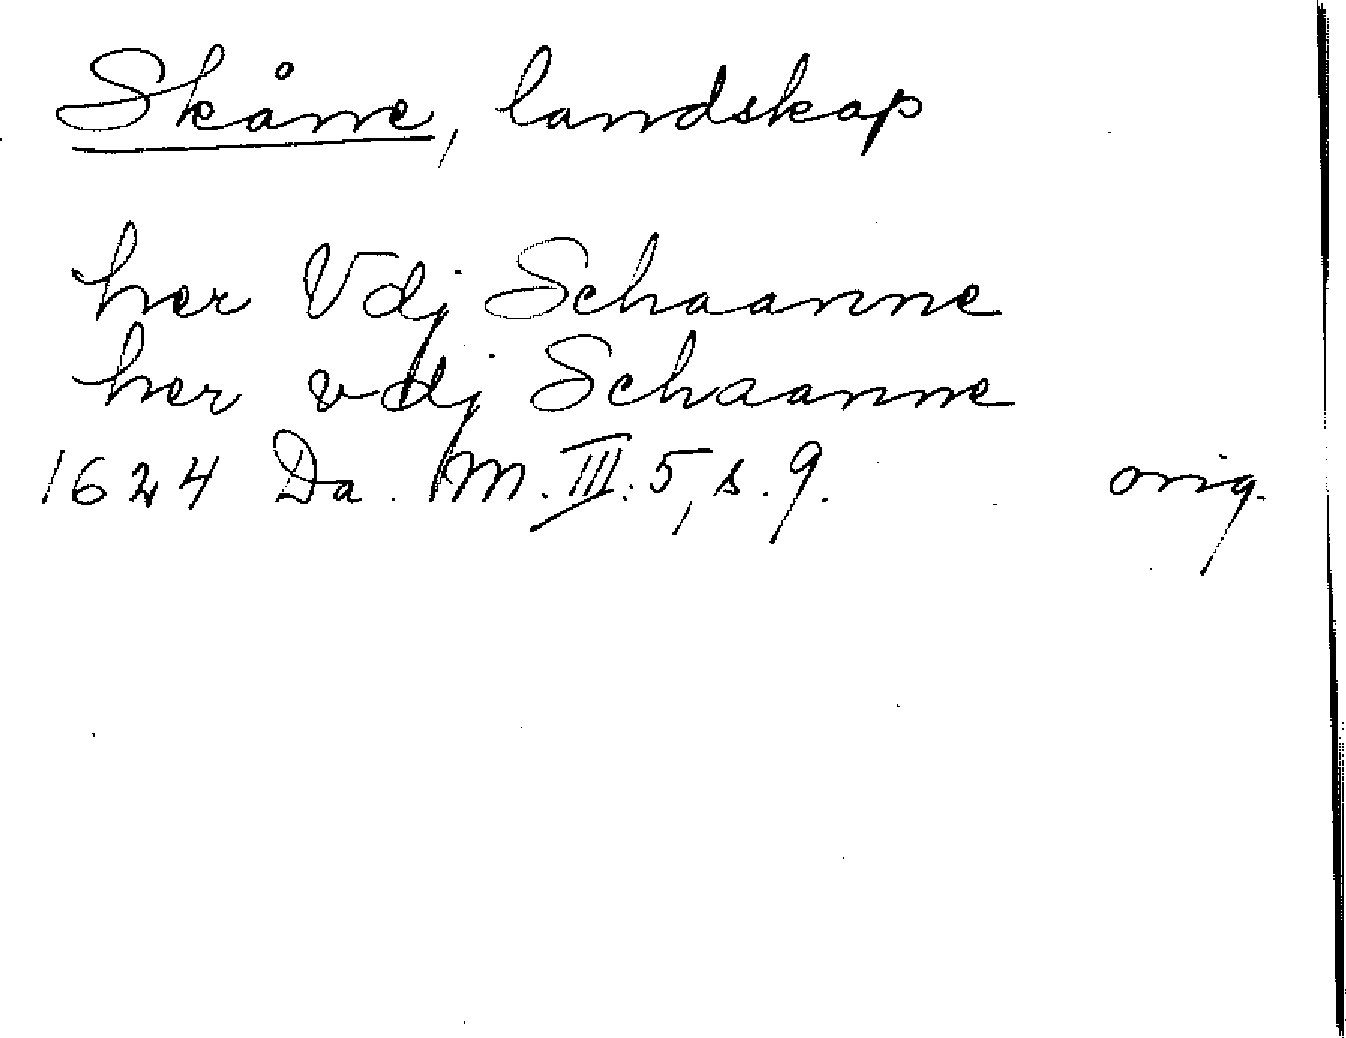 Skåne, landskap
her Vdj Schaanne
her vdj Schaanne
1624 Da. M. III:5, s. 9. orig.